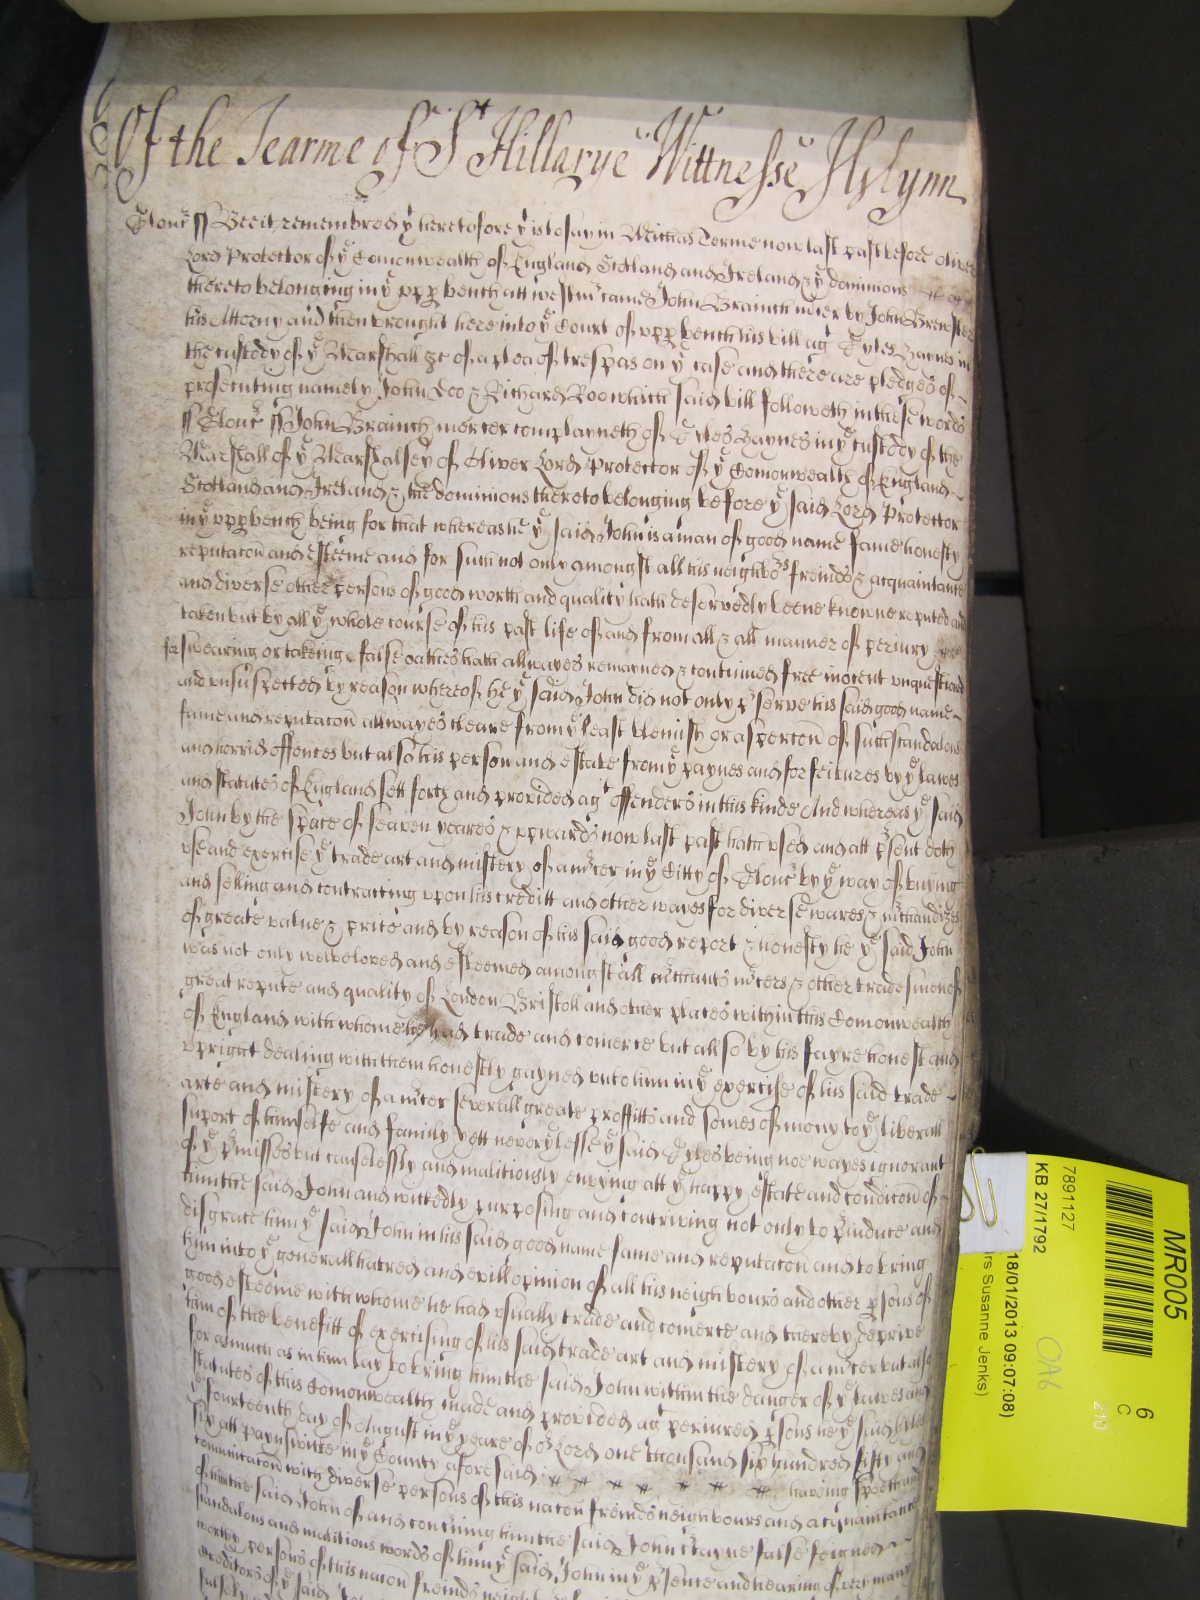 Of the Tearme of St Hillarye Wittnesse
Glouc ss Bee it remembred yt heretofore yt is to say in Michas Terme now last past before Oliver
Lord Protector of ye Comonwealth of England Scotland and Ireland & ye dominions
thereto belonging in ye upp bench att westmr came John Brainch mcer by John Brewster
his Attorny and then brought here into ye Court of upp bench his bill agt Gyles Haynes in
the custody of ye Marshall &c of a plea of trespas on ye case and there are pledges of
prosecuting namely John Doo & Richard Roo which said bill followeth in these words
ss Glouc ss John Brainch mercer complayneth of Gyles Haynes in ye custody of the
Marshall of ye Marshalsey of Oliver Lord Protector of ye Comonwealth of England
Scotland and Ireland & the dominions thereto belonging before ye said Lord Protector
in ye upp bench being for that whereas he ye said John is a man of good name fame honesty
reputacon and esteeme and for such not only amongst all his neighbors freinds & acquaintance
and diverse other persons of good worth and quality hath deservedly beene knowne reputed and
taken but by all ye whole course of his past life of and from all & all manner of periury
for swearing or takeing false oathes hath allwayes remayned & continued free inocent unquestioned
and unsuspected by reason whereof he ye said John did not only pserve his said good name
fame and reputacon allwayes cleare from ye least blemish or aspercon of such scandalous
and horrid offences but also his person and estate from ye paynes and forfeitures by ye lawes
and statutes of England sett forth and provided agt offenders in this kinde And whereas ye said
John by the space of seaven yeares & upwards now last past hath used and att psent doth
use and exercise ye trade art and mistery of a mcer in ye Citty of Glouc by ye way of buying
and selling and contracting upon his creditt and other wayes for diverse wares & mchandizes
of greate value & price and by reason of his said good report & honesty he ye said John
was not only welbeloved and esteemed amongst all mchants mcers & other tradesmen of
great repute and quality of London Bristoll and other places within this Comonwealth
of England with whome he had trade and comerce but allso by his fayre honest and
upright dealing with them honestly gayned unto him in ye exercise of his said trade
arte and mistery of a mcer severall greate proffitts and somes of mony to ye liberall
suport of himselfe and family yett neverylesse ye said Gyles being noe wayes ignorant
of ye pmisses but causelessly and malitiously envying att ye happy estate and condicon of
him the said John and wickedly purposing and contriving not only to piudice and
disgrace him ye said John in his said good name fame and reputacon and to bring
him into ye generall hatred and evill opinion of all his neighbours and other psons of
good esteeme with whome he had usually trade and comerce and thereby deprive
him of the benefitt of exercising of his said trade art and mistery of a mcer but also
for asmuch as in him lay to bring him the said John within the danger of ye lawes and
statutes of this Comonwealth made and provided agt periured psons he ye said Gyles
ye fourteenth day of August in ye yeare of or Lord one thousand six hundred fifty and
six att paynswicke in ye County aforesaid # # # # # # # having speech and
comunicacon with diverse persons of this nacon freinds neighbours and acquaintance
of him the said John of and concerning him the said John theise false feigned
scandalous and malitious words of him ye said John in ye psence and hearing of very many
worthy persons of this nacon freinds
creditors of ye said
MR005
6
C
7891127
KB 27/1792
18/01/2013 09:07:08)
rs Susanne Jenks)
OA6